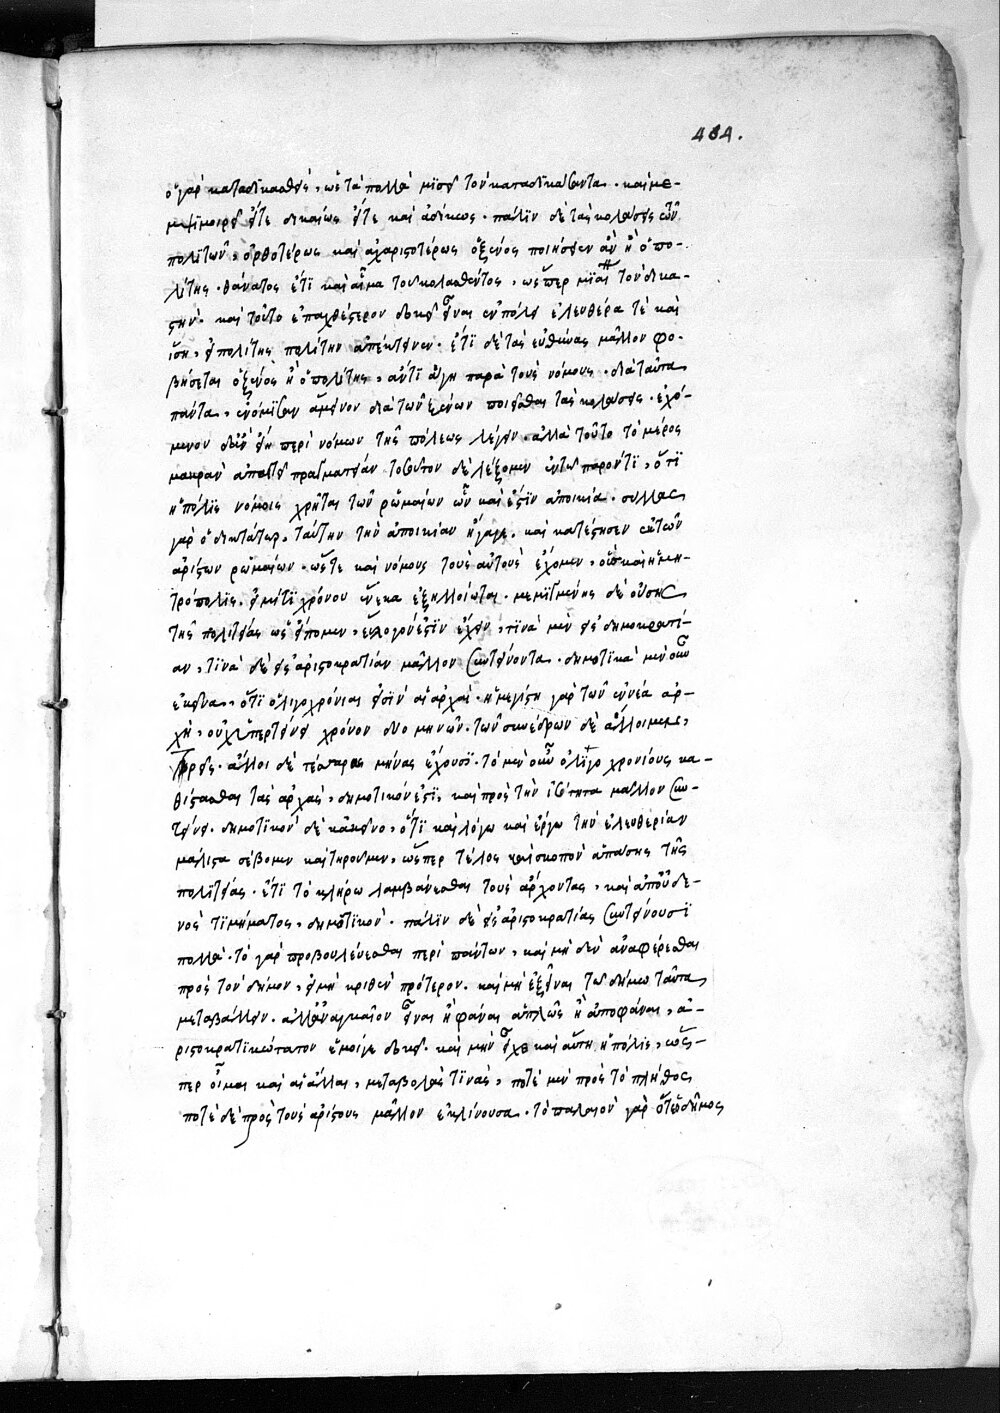 484.
ὁ γὰρ καταδικασθεὶς, ὡς τὰ πολλὰ μισεῖ τὸν καταδικάσαντα. καὶ με-
μψιμοιρεῖ εἴτε δικαίως εἴτε καὶ ἀδίκως. πάλιν δὲ τὰς κολάσεις τῶν
πολιτῶν, ὀρθοτέρως καὶ ἀχαριστοτέρως ὁ ξένος ποιήσειεν ἂν ἢ ὁ πο-
λίτης. θάνατος ἔτι καὶ αἷμα τοῦ κολασθέντος, ὥσπερ μιαίνει τὸν δικα-
στήν. καὶ τοῦτο ἐπαχθέστερον δοκεῖ εἶναι ἐν πόλει ἐλευθέρα τὲ καὶ
ἴση, εἰ πολίτης πολίτην ἀπέκτεινεν. ἔτι δὲ τὰς εὐθύνας μᾶλλον φο-
βήσεται ὁ ξένος ἢ ὁ πολίτης, ἄν τι ἄγη παρὰ τοὺς νόμους. διὰ ταῦτα
πάντα, ἐνόμισαν ἄμεινον διὰ τῶν ξένων ποιεῖσθαι τὰς κολάσεις. ἐχό-
μενον δ' ἂν εἴη περὶ νόμων τῆς πόλεως λέγειν. ἀλλὰ τοῦτο τὸ μέρος
μακρὰν ἀπαιτεῖ πραγματείαν τοσοῦτον δὲ λέξομεν ἐν τῶ παρόντι, ὅτι
ἡ πόλις νόμοις χρῆται τῶν ῥωμαίων ὧν καὶ ἔστιν ἀποικία. σύλλας
γὰρ ὁ δικτάτωρ, ταύτην τὴν ἀποικίαν ἤγαγε. καὶ κατέστησεν ἐκ τῶν
ἀρίστων ῥωμαίων. ὥστε καὶ νόμους τοὺς αὐτοὺς ἔχομεν, οὓς καὶ ἡ μη-
τρόπολις. εἰ μή τι χρόνου ἕνεκα ἐξηλλοίωται. μεμιγμένης δὲ οὔσης
τῆς πολιτείας ὡς εἴπομεν, εὔλογόν ἐστιν ἔχειν, τινὰ μὲν εἰς δημοκρατί-
αν, τινὰ δὲ εἰς ἀριστοκρατίαν μᾶλλον συντείνοντα. δημοτικὰ μὲν οὖν
ἐκεῖνα, ὅτι ὀλιγοχρόνιαι εἰσὶν αἱ ἀρχαί. ἡ μεγίστη γὰρ τῶν ἐννέα ἀρ-
χὴ, οὐχ ὑπερτείνει χρόνον δύο μηνῶν. τῶν συνέδρων δὲ ἄλλοι μὲν,
τρεῖς. ἄλλοι δὲ τέσσαρας μῆνας ἔχουσι. τὸ μὲν οὖν ὀλιγοχρονίους κα-
θίστασθαι τὰς ἀρχὰς, δημοτικόν ἐστι, καὶ πρὸς τὴν ἰσότητα μᾶλλον συν-
τείνει. δημοτικὸν δὲ κἀκεῖνο, ὅτι καὶ λόγω καὶ ἔργω τὴν ἐλευθερίαν
μάλιστα σέβομεν καὶ τηροῦμεν, ὥσπερ τέλος καὶ σκοπὸν ἁπάσης τῆς
πολιτείας. ἔτι τὸ κλήρω λαμβάνεσθαι τοὺς ἄρχοντας, καὶ ἀπ' οὐδε-
νὸς τιμήματος, δημοτικόν. πάλιν δὲ εἰς ἀριστοκρατίας συντείνουσι
πολλά. τὸ γὰρ προβουλεύεσθαι περὶ πάντων, καὶ μηδὲν ἀναφέρεσθαι
πρὸς τὸν δῆμον, εἰ μὴ κριθὲν πρότερον. καὶ μὴ ἐξεῖναι τῶ δήμω ταῦτα
μεταβάλλειν. ἀλλ' ἀναγκαῖον εἶναι ἢ φάναι ἁπλῶς ἢ ἀποφάναι, ἀ-
ριστοκρατικώτατον ἔμοιγε δοκεῖ. καὶ μὴν εἶχε καὶ αὕτη ἡ πόλις, ὥσ-
περ οἶμαι καὶ αἱ ἄλλαι, μεταβολάς τινας, ποτὲ μὲν πρὸς τὸ πλῆθος
ποτὲ δὲ πρὸς τοὺς ἀρίστους μᾶλλον ἐκκλίνουσα. τὸ παλαιὸν γὰρ ὅτε ὁ δῆμος